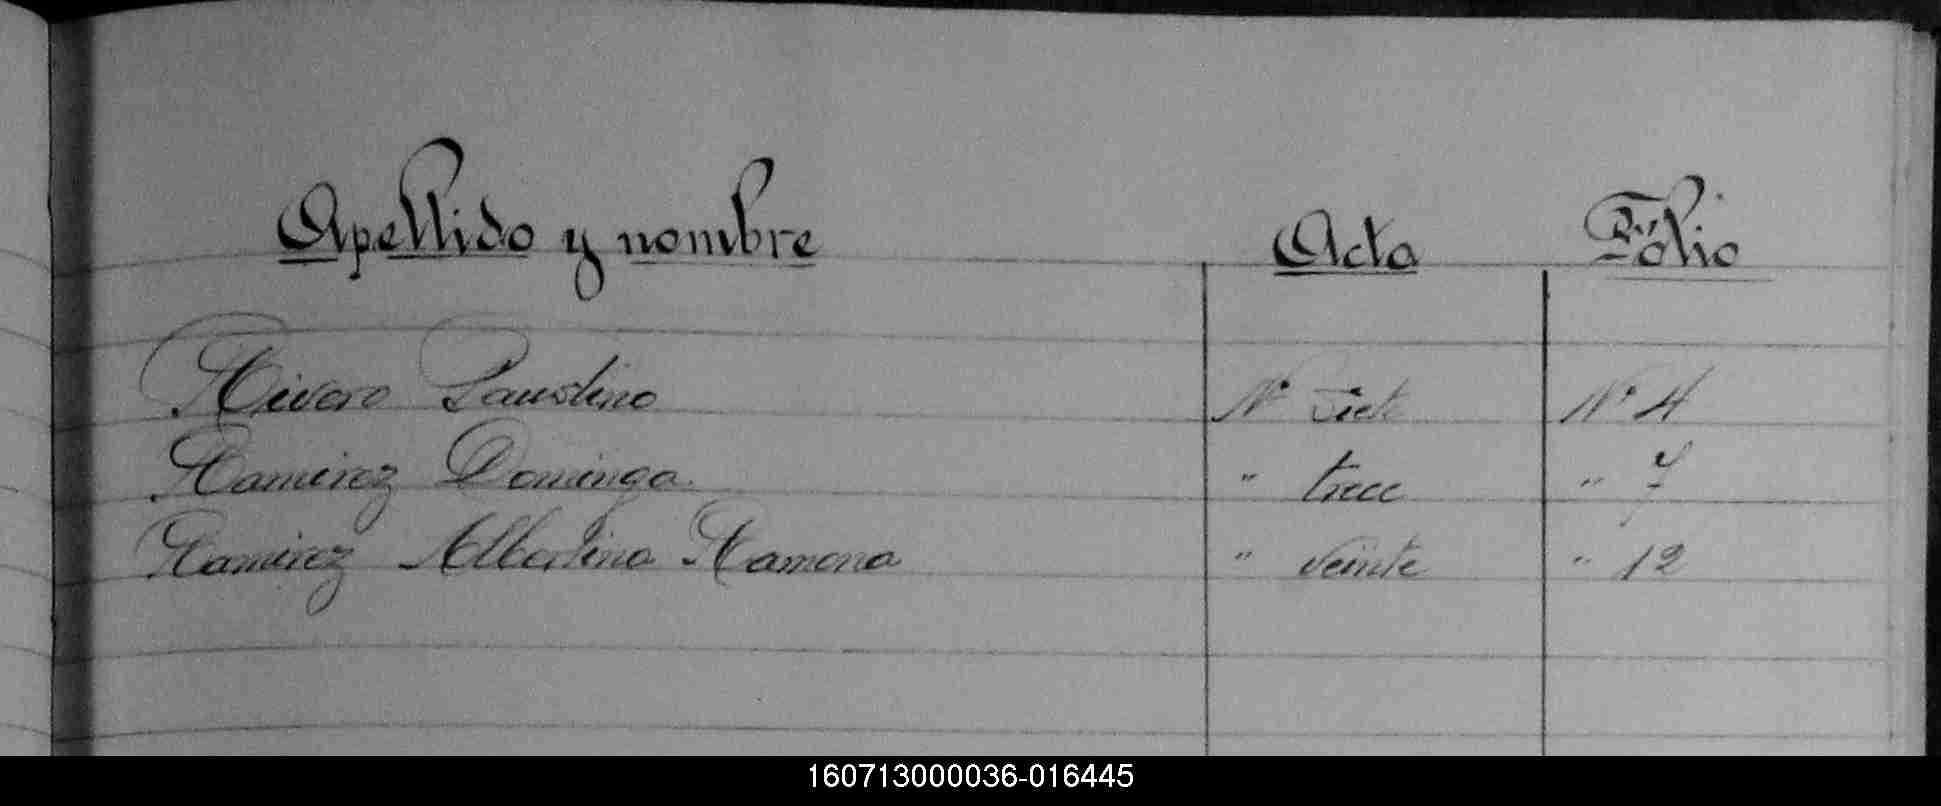 Apellido y nombre Acta Folio
Rivero Faustino Nº Siete Nº 4
Ramirez Dominga " trece " 7
Ramirez Albertina Ramona " veinte " 12
160713000036-016445